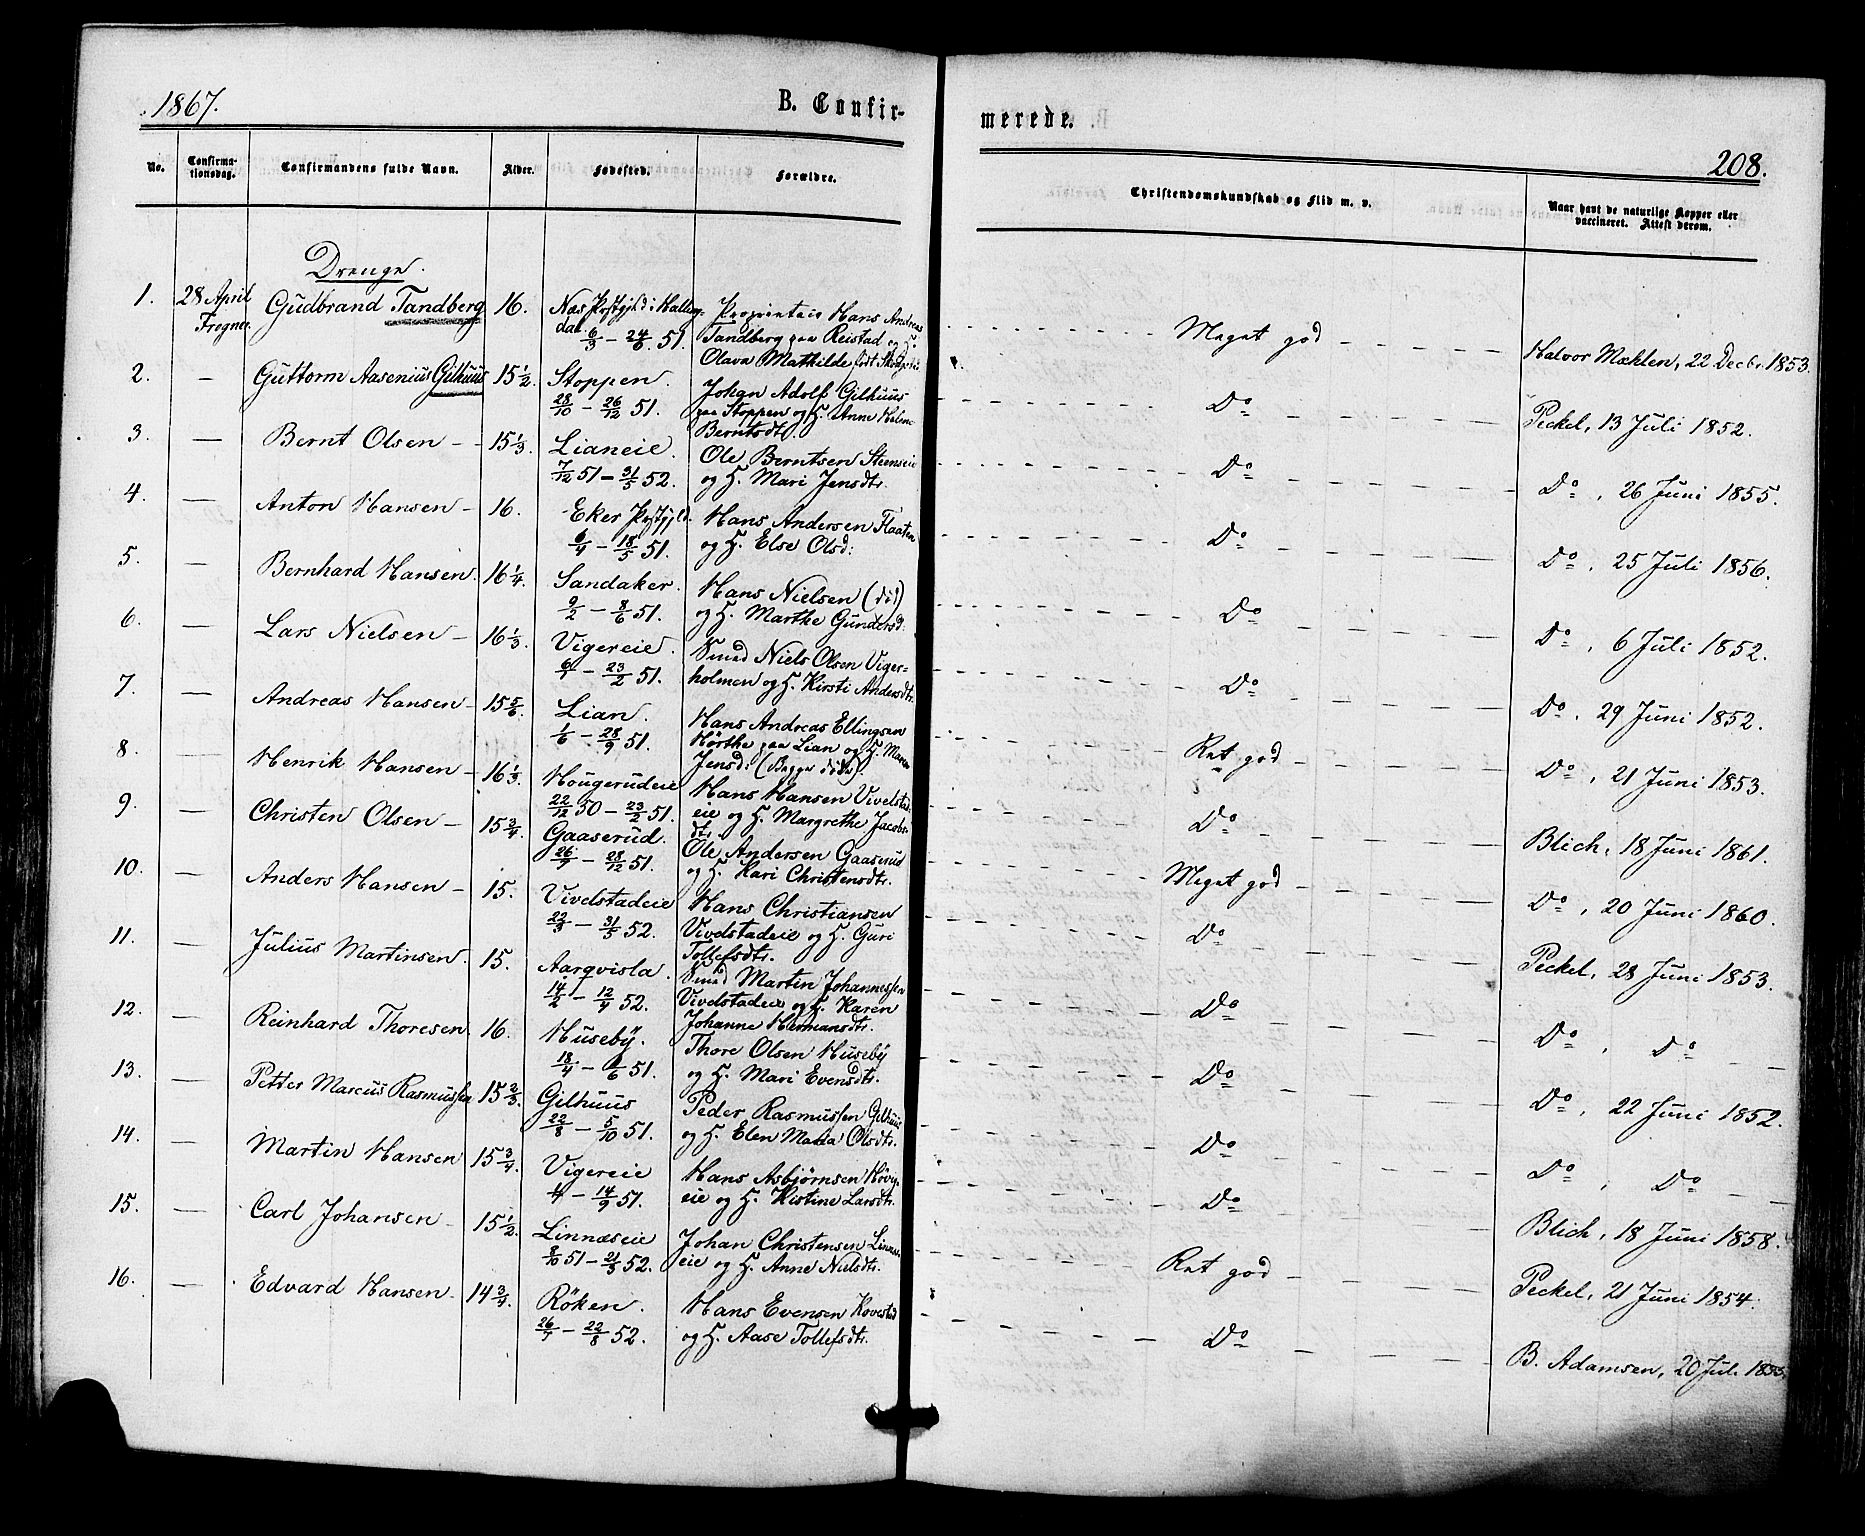 1867.
B. Confir-
merede.
208.
No.
Confirma-
tionsdag.
Confirmandens fulde Navn.
Alder.
Fødested.
Forældre.
Christendomskundskab og Flid m. v.
Naar havt de naturlige Kopper eller
vaccineret. Attest derom.
Drenge.
1. 28 April Gudbrand Tandberg 16. Næs Præstgjeld i Halling-
Frogner. dal 6/3 – 24/6 51.
Proprietair Hans Andreas
Tandberg paa Reistad og H.
Olava Mathilde, født
Meget god Halvor Mæhlen, 22 Decbr. 1853.
2. – Guttorm Aasenius Gilhuus 15 1/2. Stoppen.
28/10 – 26/12 51.
Johan Adolf Gilhuus
paa Stoppen og H. Anne Helene
Berntsdt.
Do Peckel, 13 Juli 1852.
3. – Bernt Olsen 15 1/3. Lianeie.
7/12 51 – 31/5 52.
Ole Berntsen Steinseie
og H. Mari Jensdtr.
Do Do, 26 Juni 1855.
4. – Anton Hansen 16. Eker Præstgjld.
6/4 – 18/5 51.
Hans Andersen Flaaten
og H. Else Olsd:
Do Do, 25 Juli 1856.
5. – Bernhard Hansen. 16 1/4. Sandaker.
9/2 – 8/6 51.
Hans Nielsen (død)
og H. Marthe Gundersd:
Do Do, 6 Juli 1852.
6. – Lars Nielsen 16 1/3. Vigereie.
6/1 – 23/2 51.
Smed Niels Olsen Viger-
holmen og H. Kirsti Andersdtr.
Do Do, 29 Juni 1852.
7. – Andreas Hansen 15 5/6. Lian.
1/6 – 28/9 51.
Hans Andreas Ellingsen
Hørthe paa Lian og H. Maren
Jensd: (Begge døde).
Ret god Do, 21 Juni 1853.
8. – Henrik Hansen 16 1/3. Hougerudeie
22/12 50 – 23/2 51.
Hans Hansen Vivelstad-
eie og H. Margrethe Jacobs-
dtr.
Do Blich, 18 Juni 1861.
9. – Christen Olsen 15 3/4. Gaaserud.
26/7 – 28/12 51.
Ole Andersen Gaaserud
og H. Kari Christensdtr.
Meget god Do, 20 Juni 1860.
10. – Anders Hansen 15. Vivelstadeie
22/3 – 31/5 52.
Hans Christiansen
Vivelstadeie og H. Guri
Tollefsdtr.
Do Peckel, 28 Juni 1853.
11. – Julius Martinsen. 15. Aarqvisla.
14/2 – 12/4 52.
Smed Martin Johannessen
Vivelstadeie og H. Karen
Johanne Hermansdtr.
Do Do, Do
12. – Reinhard Thoresen 16. Huseby.
18/4 – 8/6 51.
Thore Olsen Huseby
og H. Mari Evensdtr.
Do Do, 22 Juni 1852.
13. – Petter Marcus Rasmussen 15 2/3. Gilhuus
22/8 – 5/10 51.
Peder Rasmussen Gilhuus
og H. Elen Maria Olsdtr.
Do Do, Do
14. – Martin Hansen 15 3/4. Vigereie
– 14/9 51.
Hans Asbjørnsen Høvig-
eie og H. Kistine Larsdtr.
Do Blich, 18 Juni 1858.
15. – Carl Johansen 15 1/2. Linnæseie
8/10 51 – 21/3 52.
Johan Christensen Linnæs-
eie og H. Anne Nielsdtr.
Ret god Peckel, 21 Juni 1854.
16. – Edvard Hansen 14 3/4. Röken.
26/7 – 22/8 52.
Hans Evensen Hovestad
og H. Aase Tollefsdtr.
Do B. Adamsen, 20 Jul.